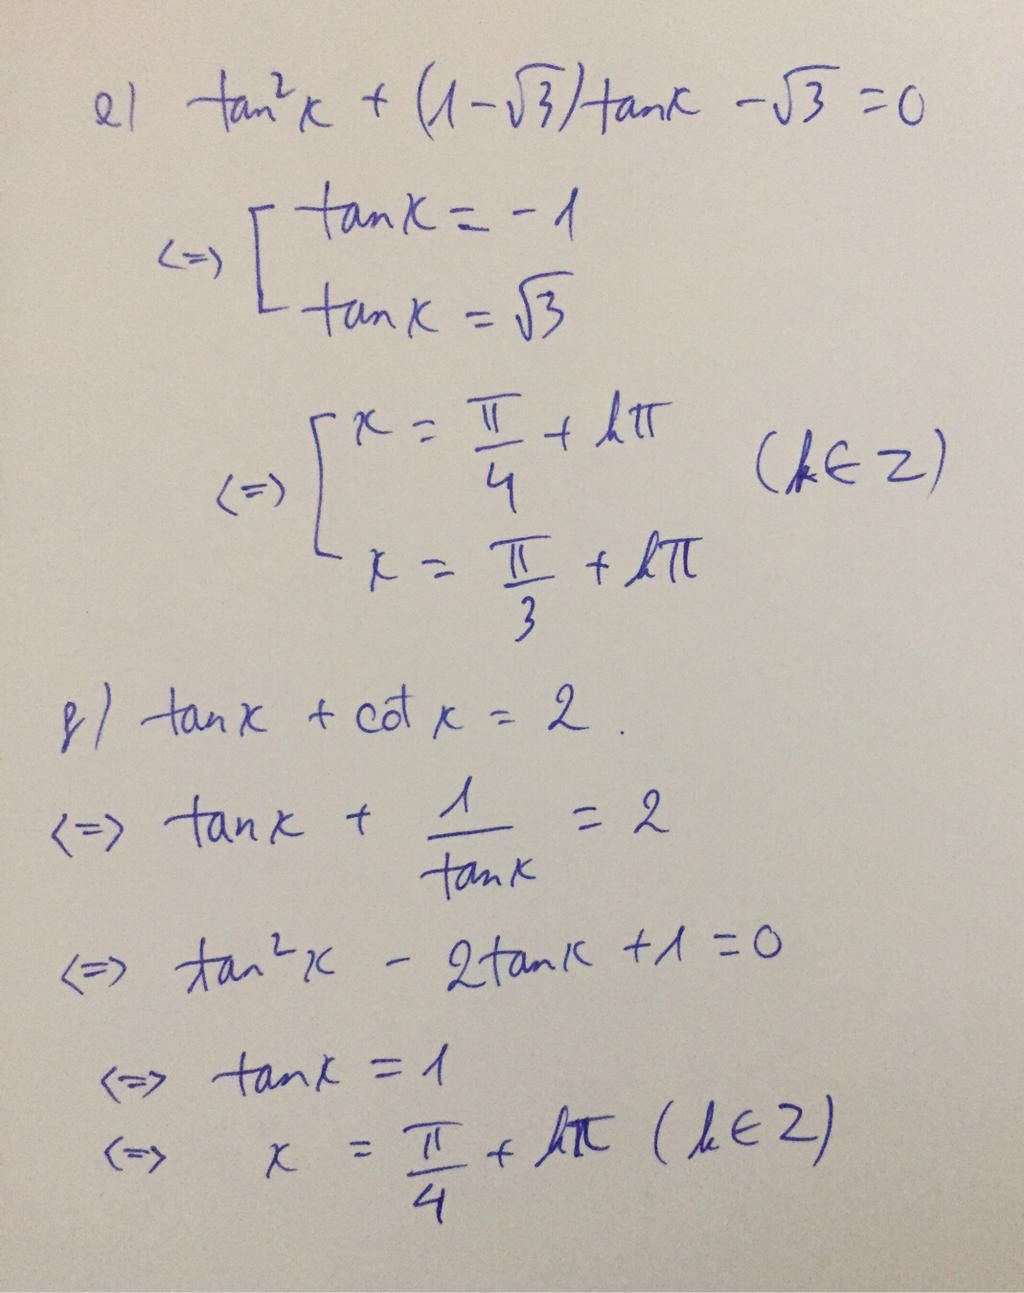 e) tan²x + (1-√3)tanx -√3 = 0
<=> [ tanx = -1
tanx = √3
<=> [ x = π/4 + kπ
x = π/3 + kπ (k∈Z)
f) tanx + cotx = 2.
<=> tanx + 1/tanx = 2
<=> tan²x - 2tanx +1 = 0
<=> tanx = 1
<=> x = π/4 + kπ (k∈Z)